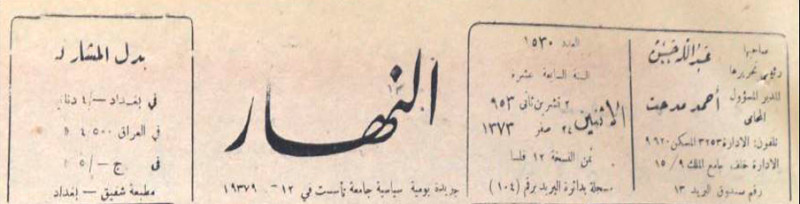 صاحبها
ورئيس تحريرها
عبدالله حسين
المدير المسؤول
أحمد مدحت
المحامي
تلفون: الادارة ٣٢٥٣ المسكن ٩٦٢٠
الادارة خلف جامع الملك ١٥/٩
رقم صندوق البريد ١٣
العدد ١٥٣٠
السنة السابعة عشرة
الاثنين
٢ تشرين ثاني ٩٥٣
٢٤ صفر ١٣٧٣
ثمن النسخة ١٢ فلسا
مسجلة بدائرة البريد برقم (١٠٤)
النهار
جريدة يومية سياسية جامعة تأسست في ١٢-
بدل المشار
في بغداد -/٤
في العراق ٤/٥٠٠
في ج -/٥
مطبعة شفيق - بغداد